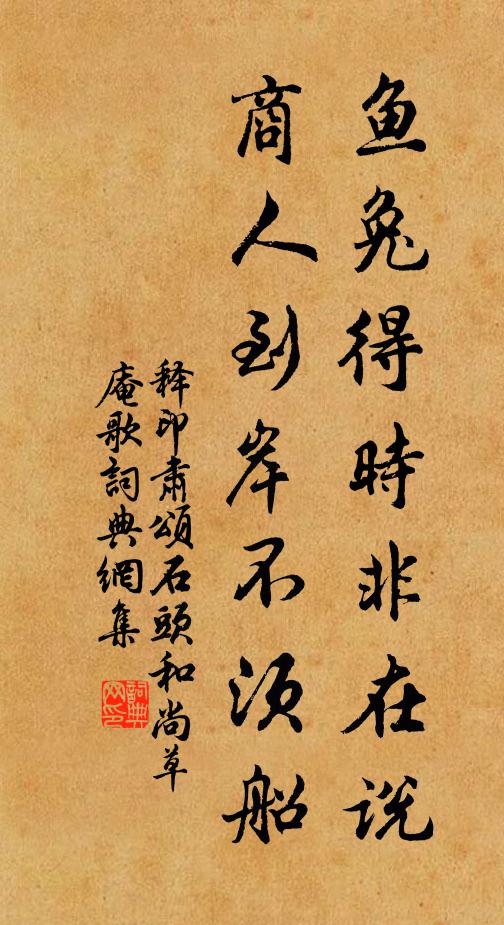 鱼兔得時非在说
商人到岸不須船
释印肅頌石頭和尚草
庵歌詞典網集
詞典
网印